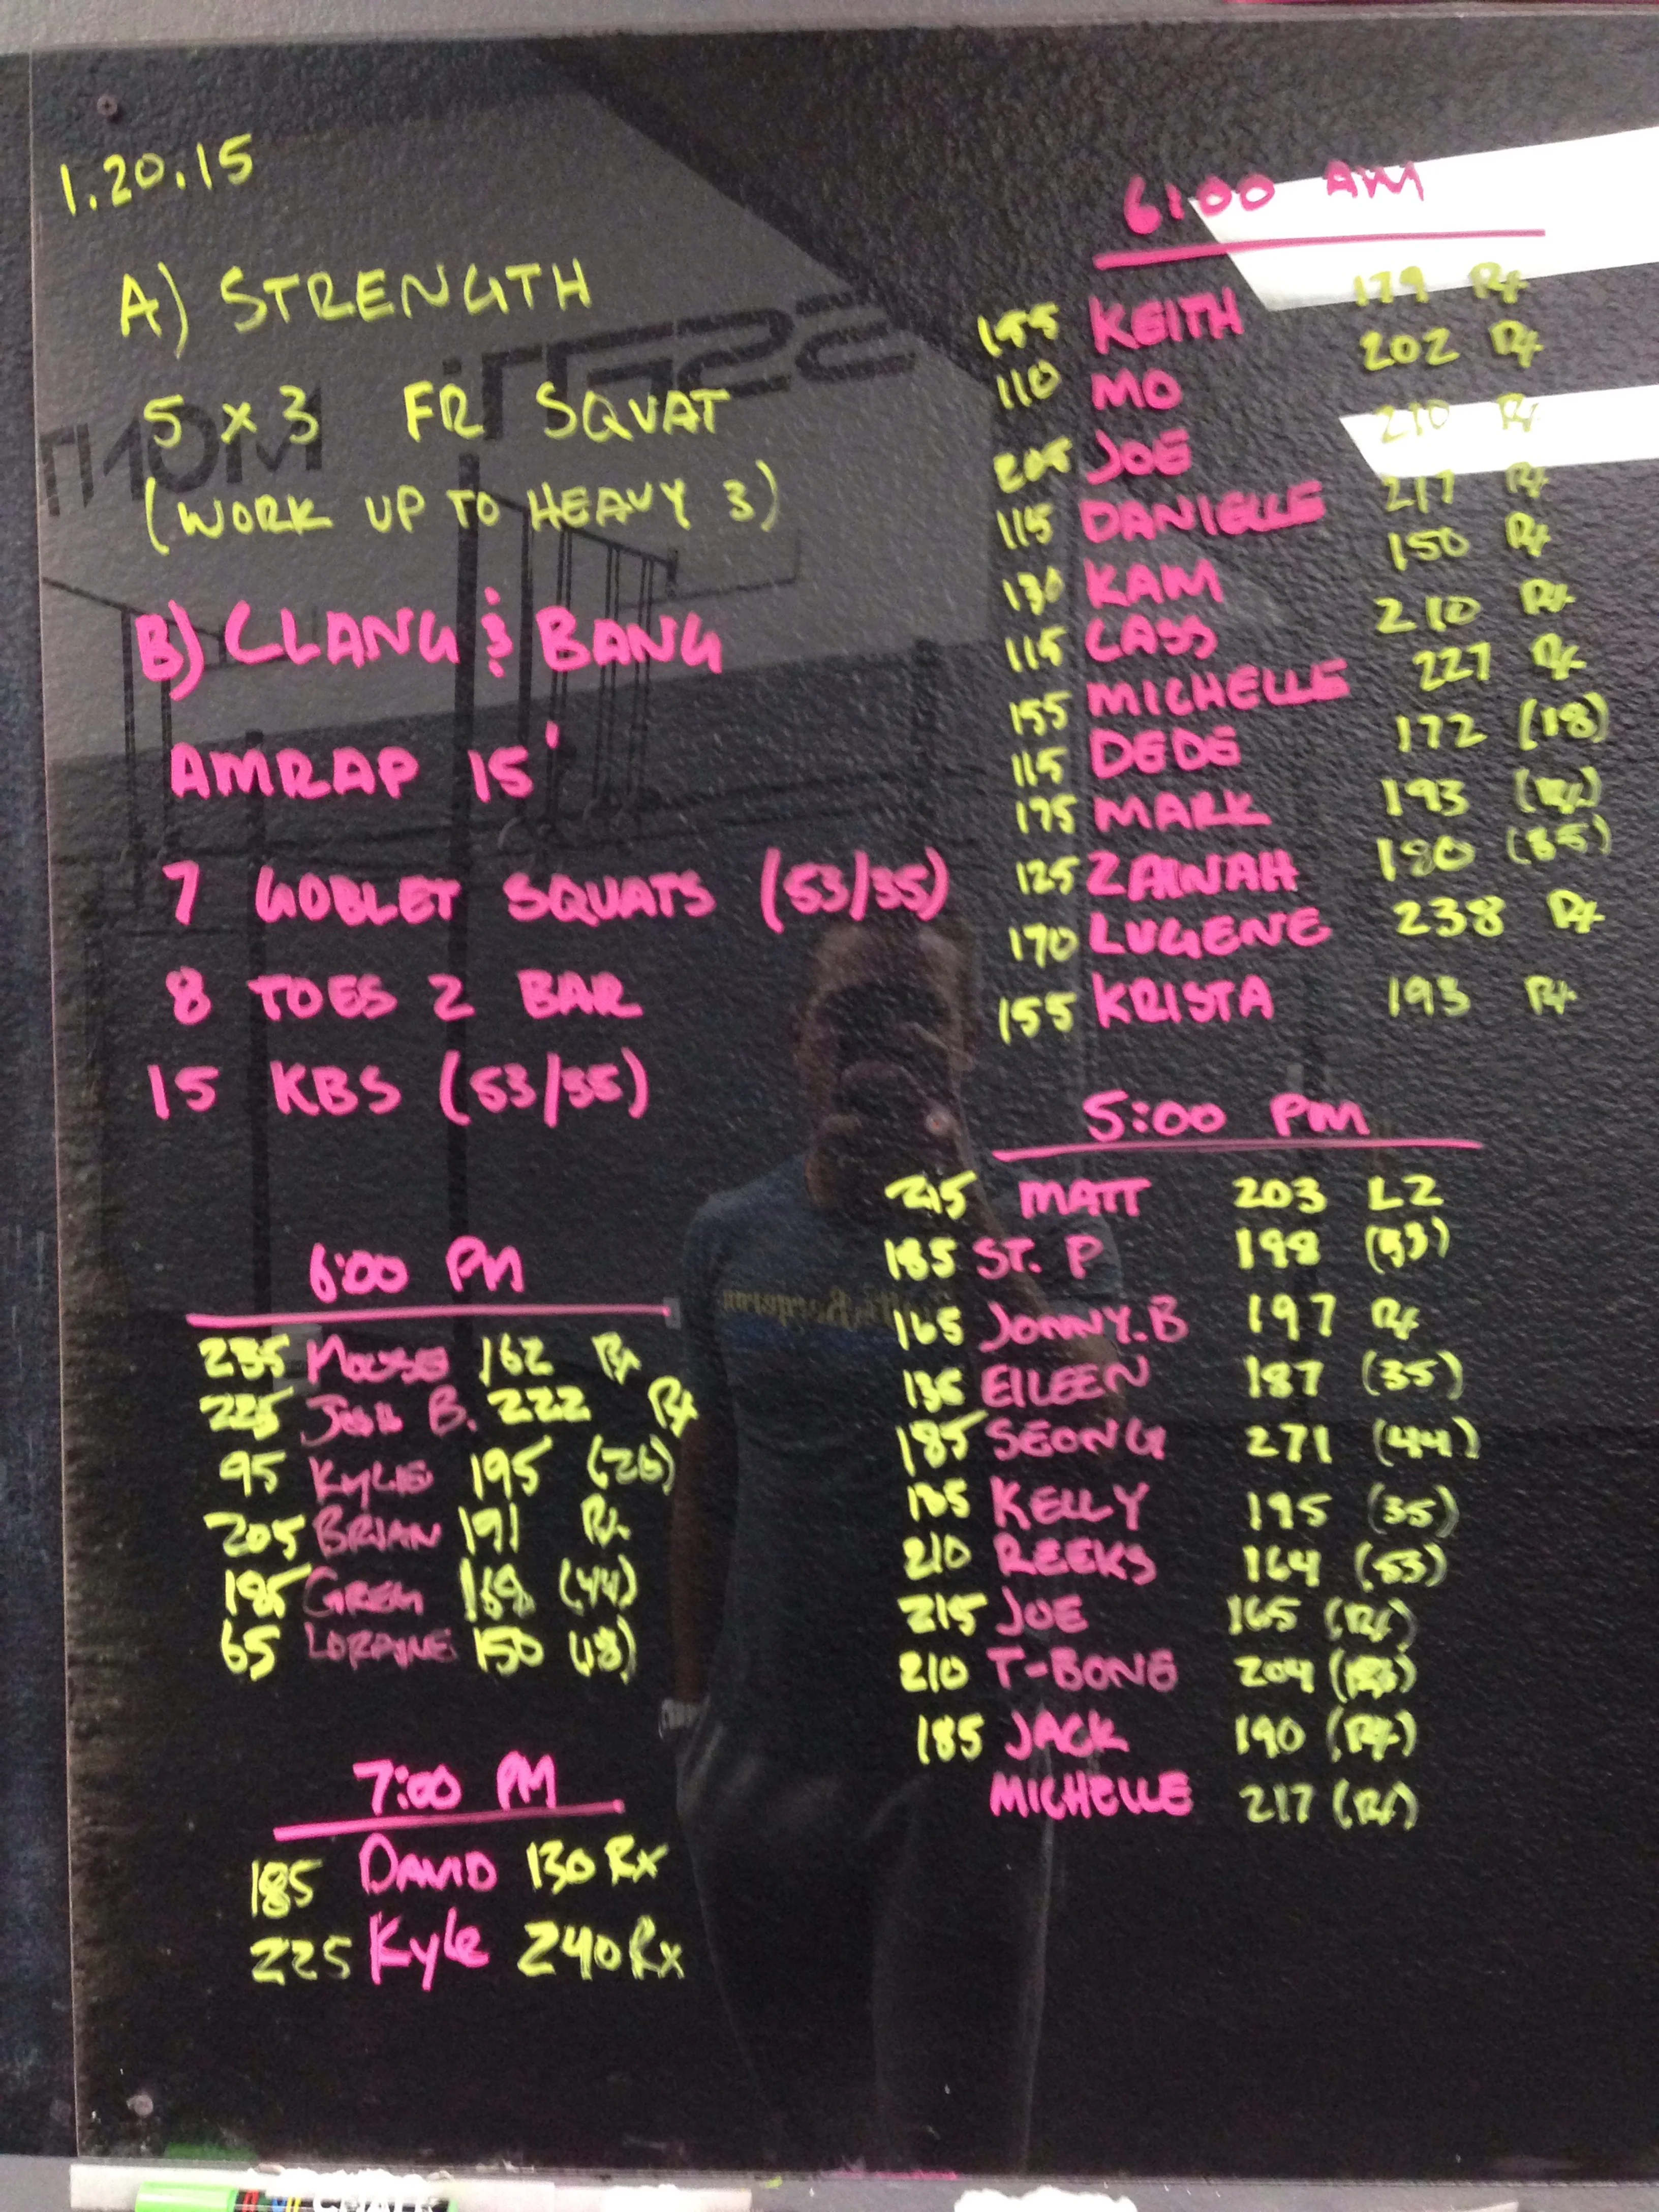 1.20.15
A) STRENGTH
5 x 3 FR SQUAT
(WORK UP TO HEAVY 3)
B) CLANG & BANG
AMRAP 15'
7 GOBLET SQUATS (53/35)
8 TOES 2 BAR
15 KBS (53/35)
6:00 AM
155 KEITH 179 Rx
110 MO 202 Rx
205 JOE 210 Rx
115 DANIELLE 217 Rx
130 KAM 150 Rx
115 CASS 210 Rx
155 MICHELLE 227 Rx
115 DEDE 172 (18)
175 MARK 193 (Rx)
125 ZAINAH 180 (35)
170 LUGENE 238 Rx
155 KRISTA 193 Rx
5:00 PM
215 MATT 203 L2
185 ST. P 198 (53)
165 JONNY.B 197 Rx
135 EILEEN 187 (35)
185 SEONG 271 (44)
KELLY 195 (35)
210 REEKS 164 (53)
215 JOE 165 (Rx)
210 T-BONE 204
185 JACK 190 (Rx)
MICHELLE 217 (Rx)
6:00 PM
235 MOUSE 162 Rx
225 JOSH B. 222 Rx
95 KYLIE 195 (26)
205 BRIAN 191 Rx
185 GREG 168 (44)
65 LORAINE 150 (18)
7:00 PM
185 DAVID 130 Rx
225 Kyle 240 Rx
CHALK